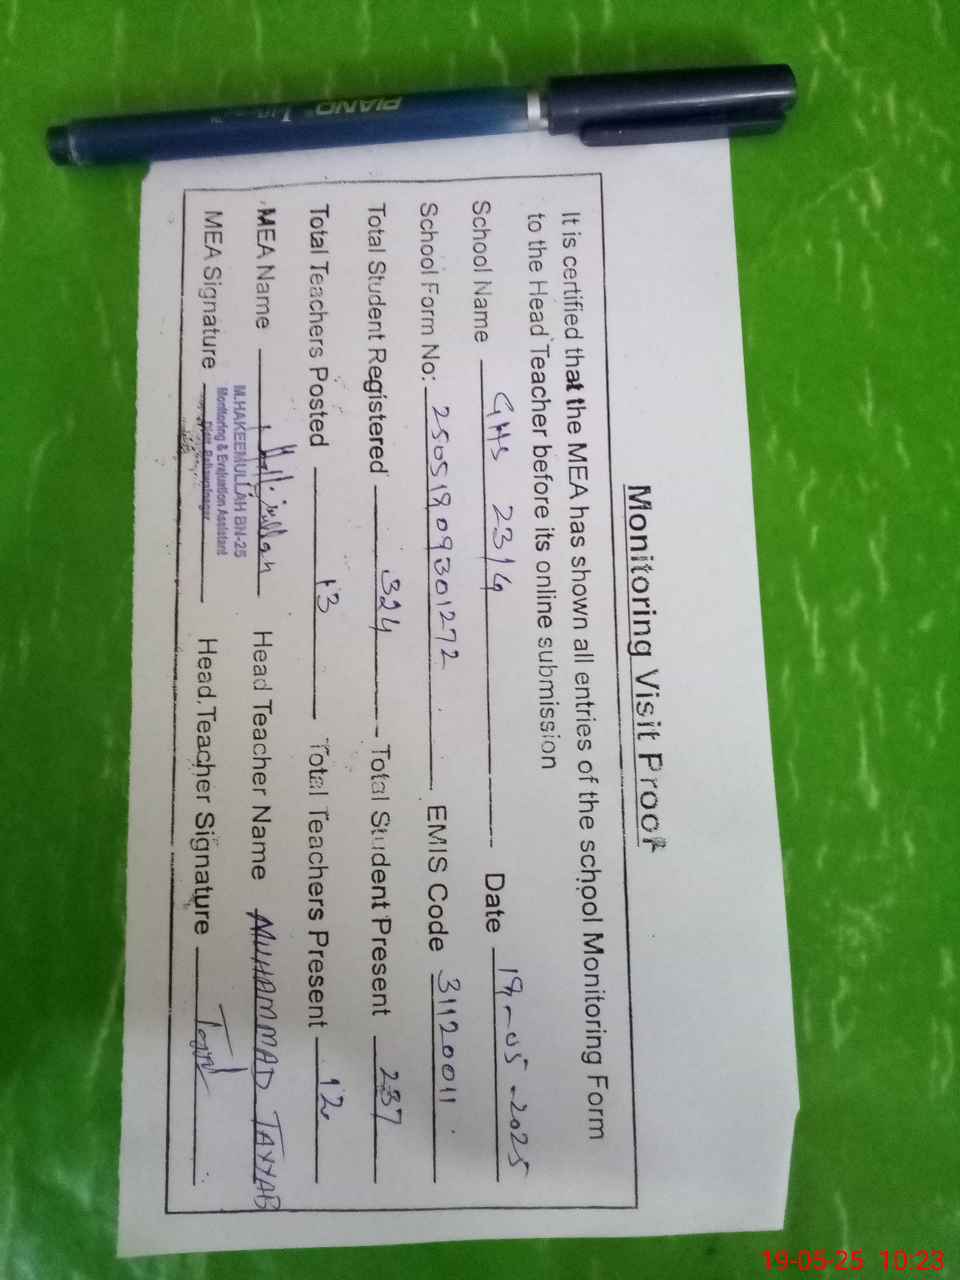 PIANO
Monitoring Visit Proof
It is certified that the MEA has shown all entries of the school Monitoring Form
to the Head Teacher before its online submission
School Name GHS 231/4 Date 19-05-2025
School Form No: 25051909301272 EMIS Code 31120011
Total Student Registered 324 Total Student Present 237
Total Teachers Posted 13 Total Teachers Present 12
MEA Name Head Teacher Name MUHAMMAD TAYYAB
M.HAKEEMULLAH BN-25
Monitoring & Evaluation Assistant
MEA Signature Head Teacher Signature
19-05-25 10:23